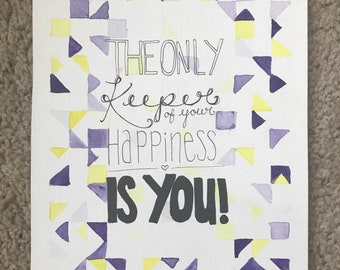 THE ONLY
Keeper
of your
HAPPINESS
IS YOU!